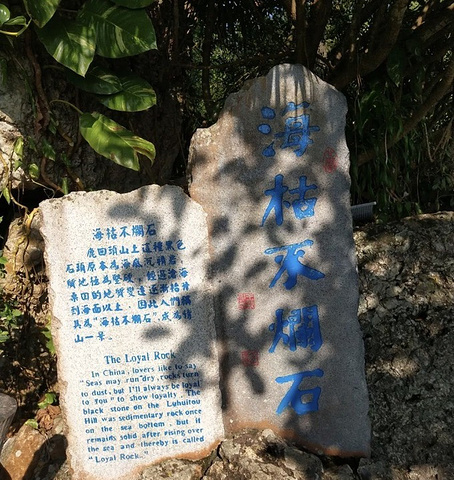 海枯不爛石
海枯不爛石
鹿回頭山上這種黑色
石頭原本為海底沉積岩，
質地極為堅硬，經過滄海
桑田的地質變遷逐漸抬升
到海面以上，因此人們稱
其為"海枯不爛石"，成為
山一景。
The Loyal Rock
In China, lovers like to say
"Seas may run dry, rocks turn
to dust, but I'll always be loyal
to You" to show loyalty. The
black stone on the Luhuitou
Hill was sedimentary rock once
on the sea bottom, but it
remains solid after rising over
the sea and thereby is called
"Loyal Rock."